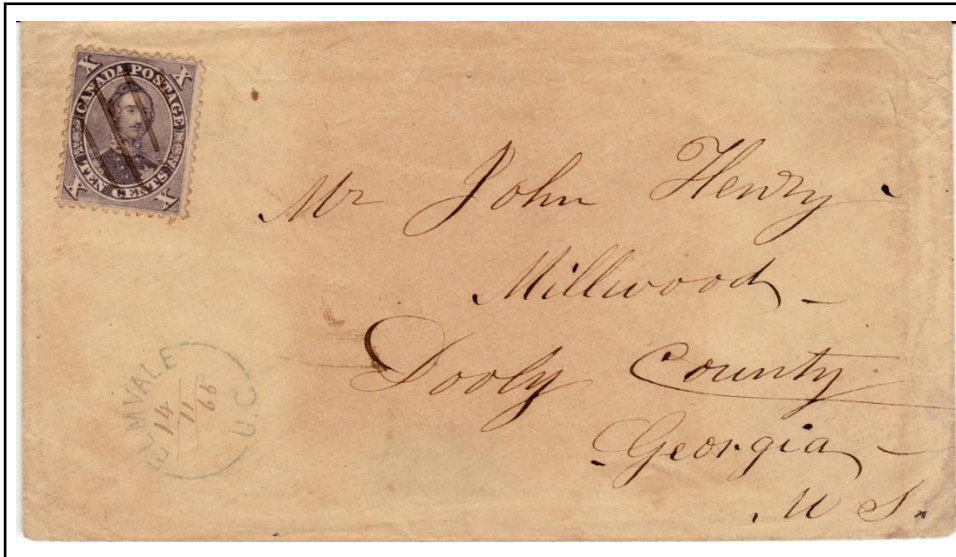 X X
CANADA POSTAGE
TEN CENTS
X X
Mr John Henry
Millwood
Dooly County
Georgia
U S.
ELMVALE
14
11
66
U.C